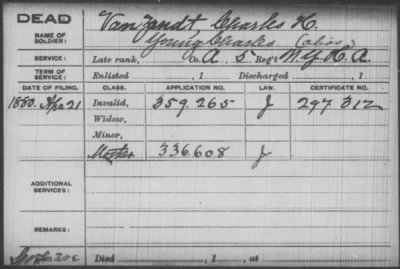 DEAD
NAME OF SOLDIER:
Van Zandt Charles H.
Young Charles (alias)
SERVICE:
Late rank, Co. A, 5 Reg't N.Y. H.A.
TERM OF SERVICE:
Enlisted , 1 Discharged , 1
DATE OF FILING. CLASS. APPLICATION NO. LAW. CERTIFICATE NO.
1880. Apr 21 Invalid, 359.265 J 297 312
Widow,
Minor,
Mother 336.608 J
ADDITIONAL SERVICES:
REMARKS:
Died , 1 , at